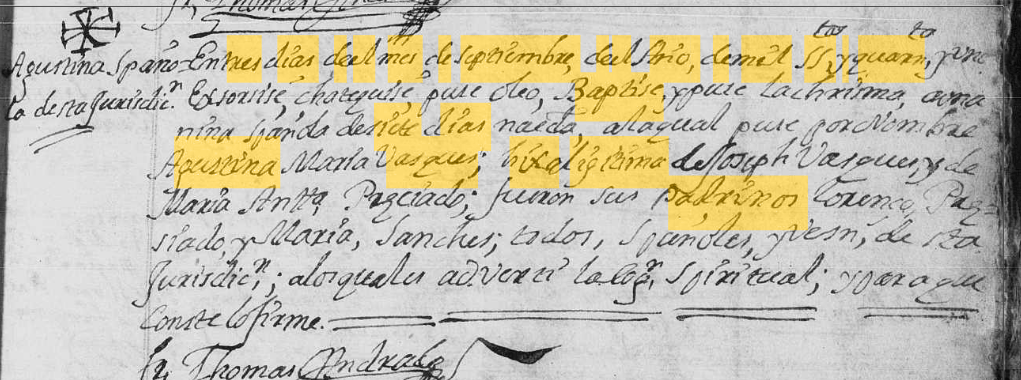 fr, Thomas
Agustina Spaño
la de sta Jurisdic.n
En tres dias de el mes de septiembre, de el Año, de mil SS.tos y quarn.ta, y
Exsorsisé, chatequisé, puse oleo, Baptisé, y puse la chrisma, a vna
nina Spãnola de siete dias nacida, a la qual puse por Nombre
Agustina Maria Vasques; hixa ligitima de Joseph Vasques, y de
Maria Antta, Preciado; fueron sus padrinos lorenco, Pre=
siado y Maria, Sanches; todos, Spañoles, y Vesn,s de sta
Jurisdic.n; a los quales adverti la Cog.n, Spiritual; y para que
Conste lo firme.
fr, Thomas Andrade